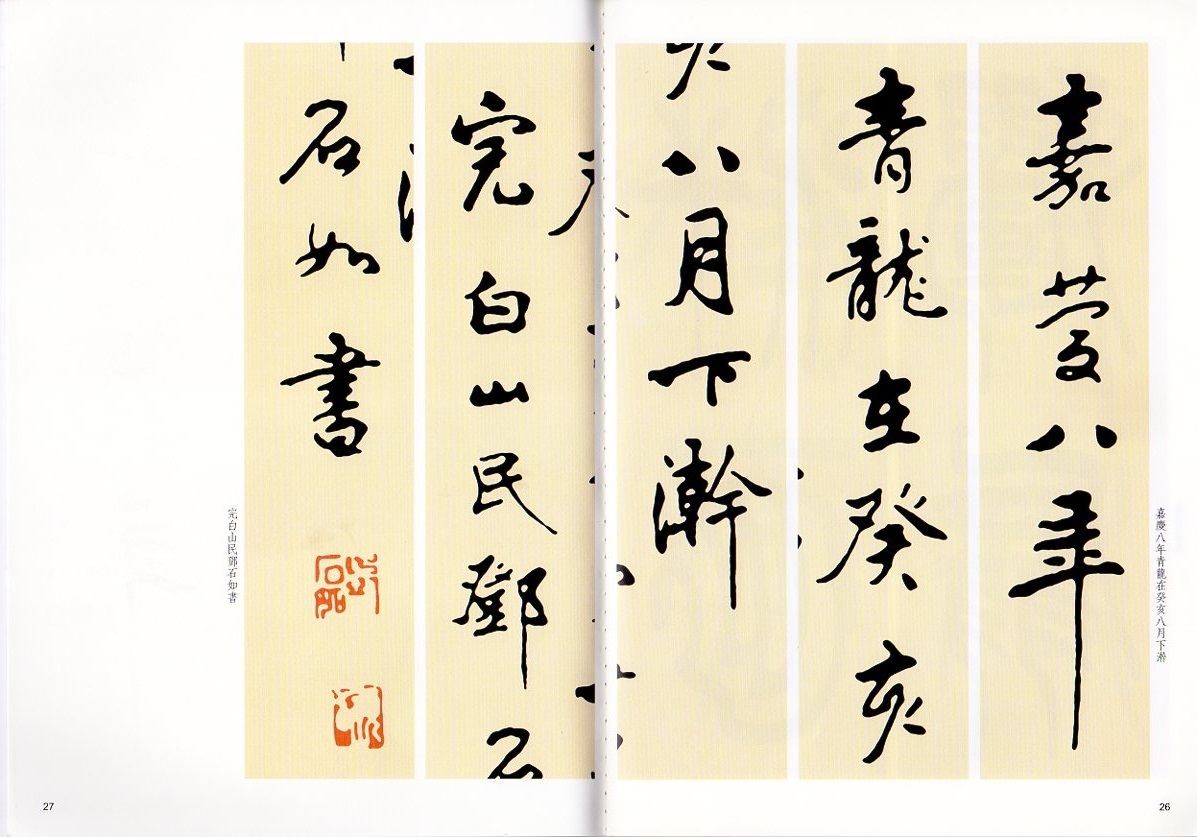 嘉慶八年青龍在癸亥八月下澣
嘉慶八年
青龍在癸亥
八月下澣
完白山民鄧
石如書
完白山民鄧石如書
26
27